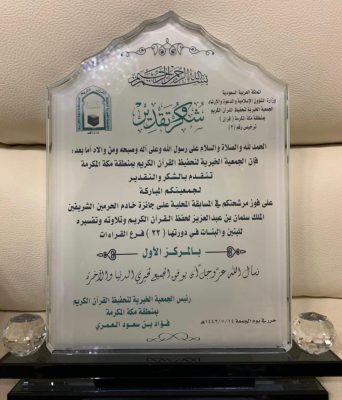 بسم الله الرحمن الرحيم
المملكة العربية السعودية
وزارة الشؤون الإسلامية والدعوة والإرشاد
الجمعية الخيرية لتحفيظ القرآن الكريم
بمنطقة مكة المكرمة
ترخيص رقم (٢)
شكر وتقدير
الحمد لله والصلاة والسلام على رسول الله وعلى آله وصحبه ومن والاه أما بعد؛
فإن الجمعية الخيرية لتحفيظ القرآن الكريم بمنطقة مكة المكرمة
تتقدم بالشكر والتقدير
لجمعيتكم المباركة
على فوز مرشحتكم في المسابقة المحلية على جائزة خادم الحرمين الشريفين
الملك سلمان بن عبدالعزيز لحفظ القرآن الكريم وتلاوته وتفسيره
للبنين والبنات في دورتها (٢٢) فرع القراءات
بالمركز الأول
نسأل الله عز وجل أن يوفق الجميع لخيري الدنيا والآخرة
رئيس الجمعية الخيرية لتحفيظ القرآن الكريم
بمنطقة مكة المكرمة
فؤاد بن سعود العمري
حرر في يوم الجمعة ١٤٤٢/٧/١٤